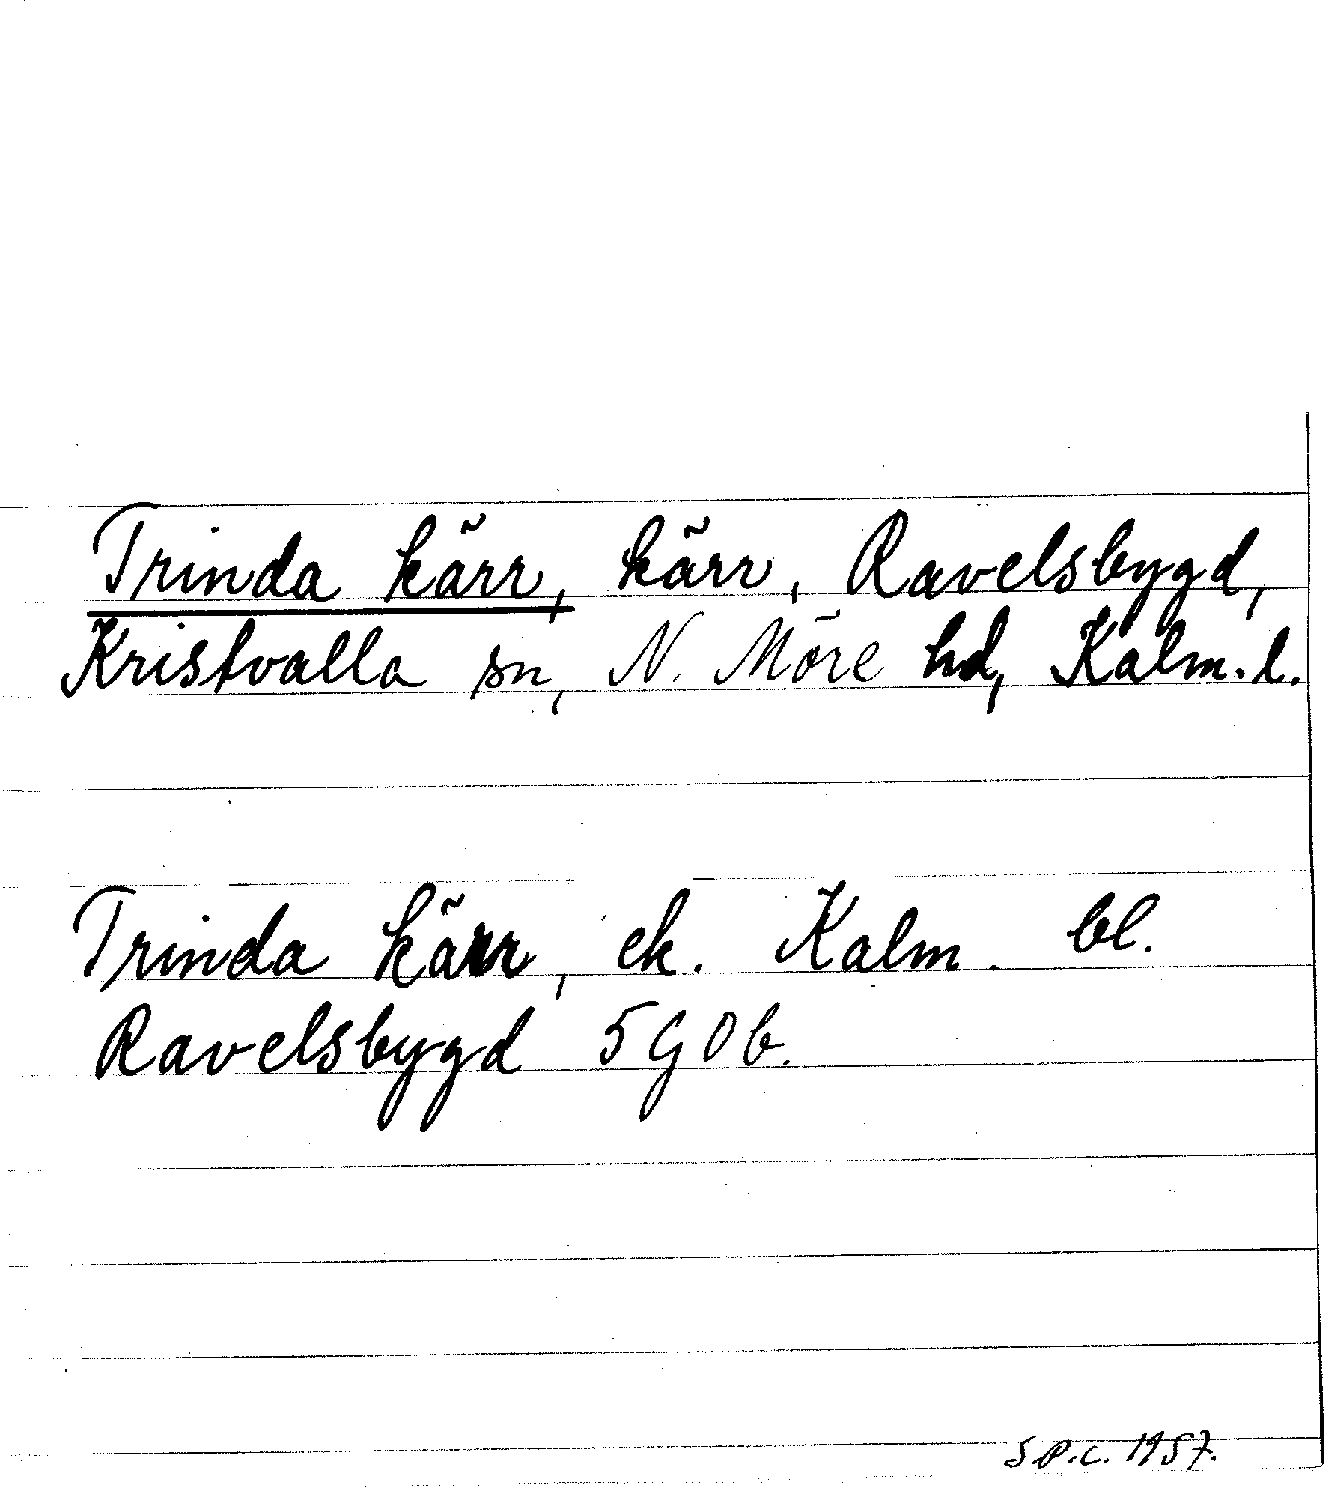 Trinda kärr, kärr, Ravelsbygd,
Kristvalla sn, N. Möre hd, Kalm. l.
Trinda kärr, ek. Kalm. bl.
Ravelsbygd 5 G 0 b.
S.P.C. 1957.